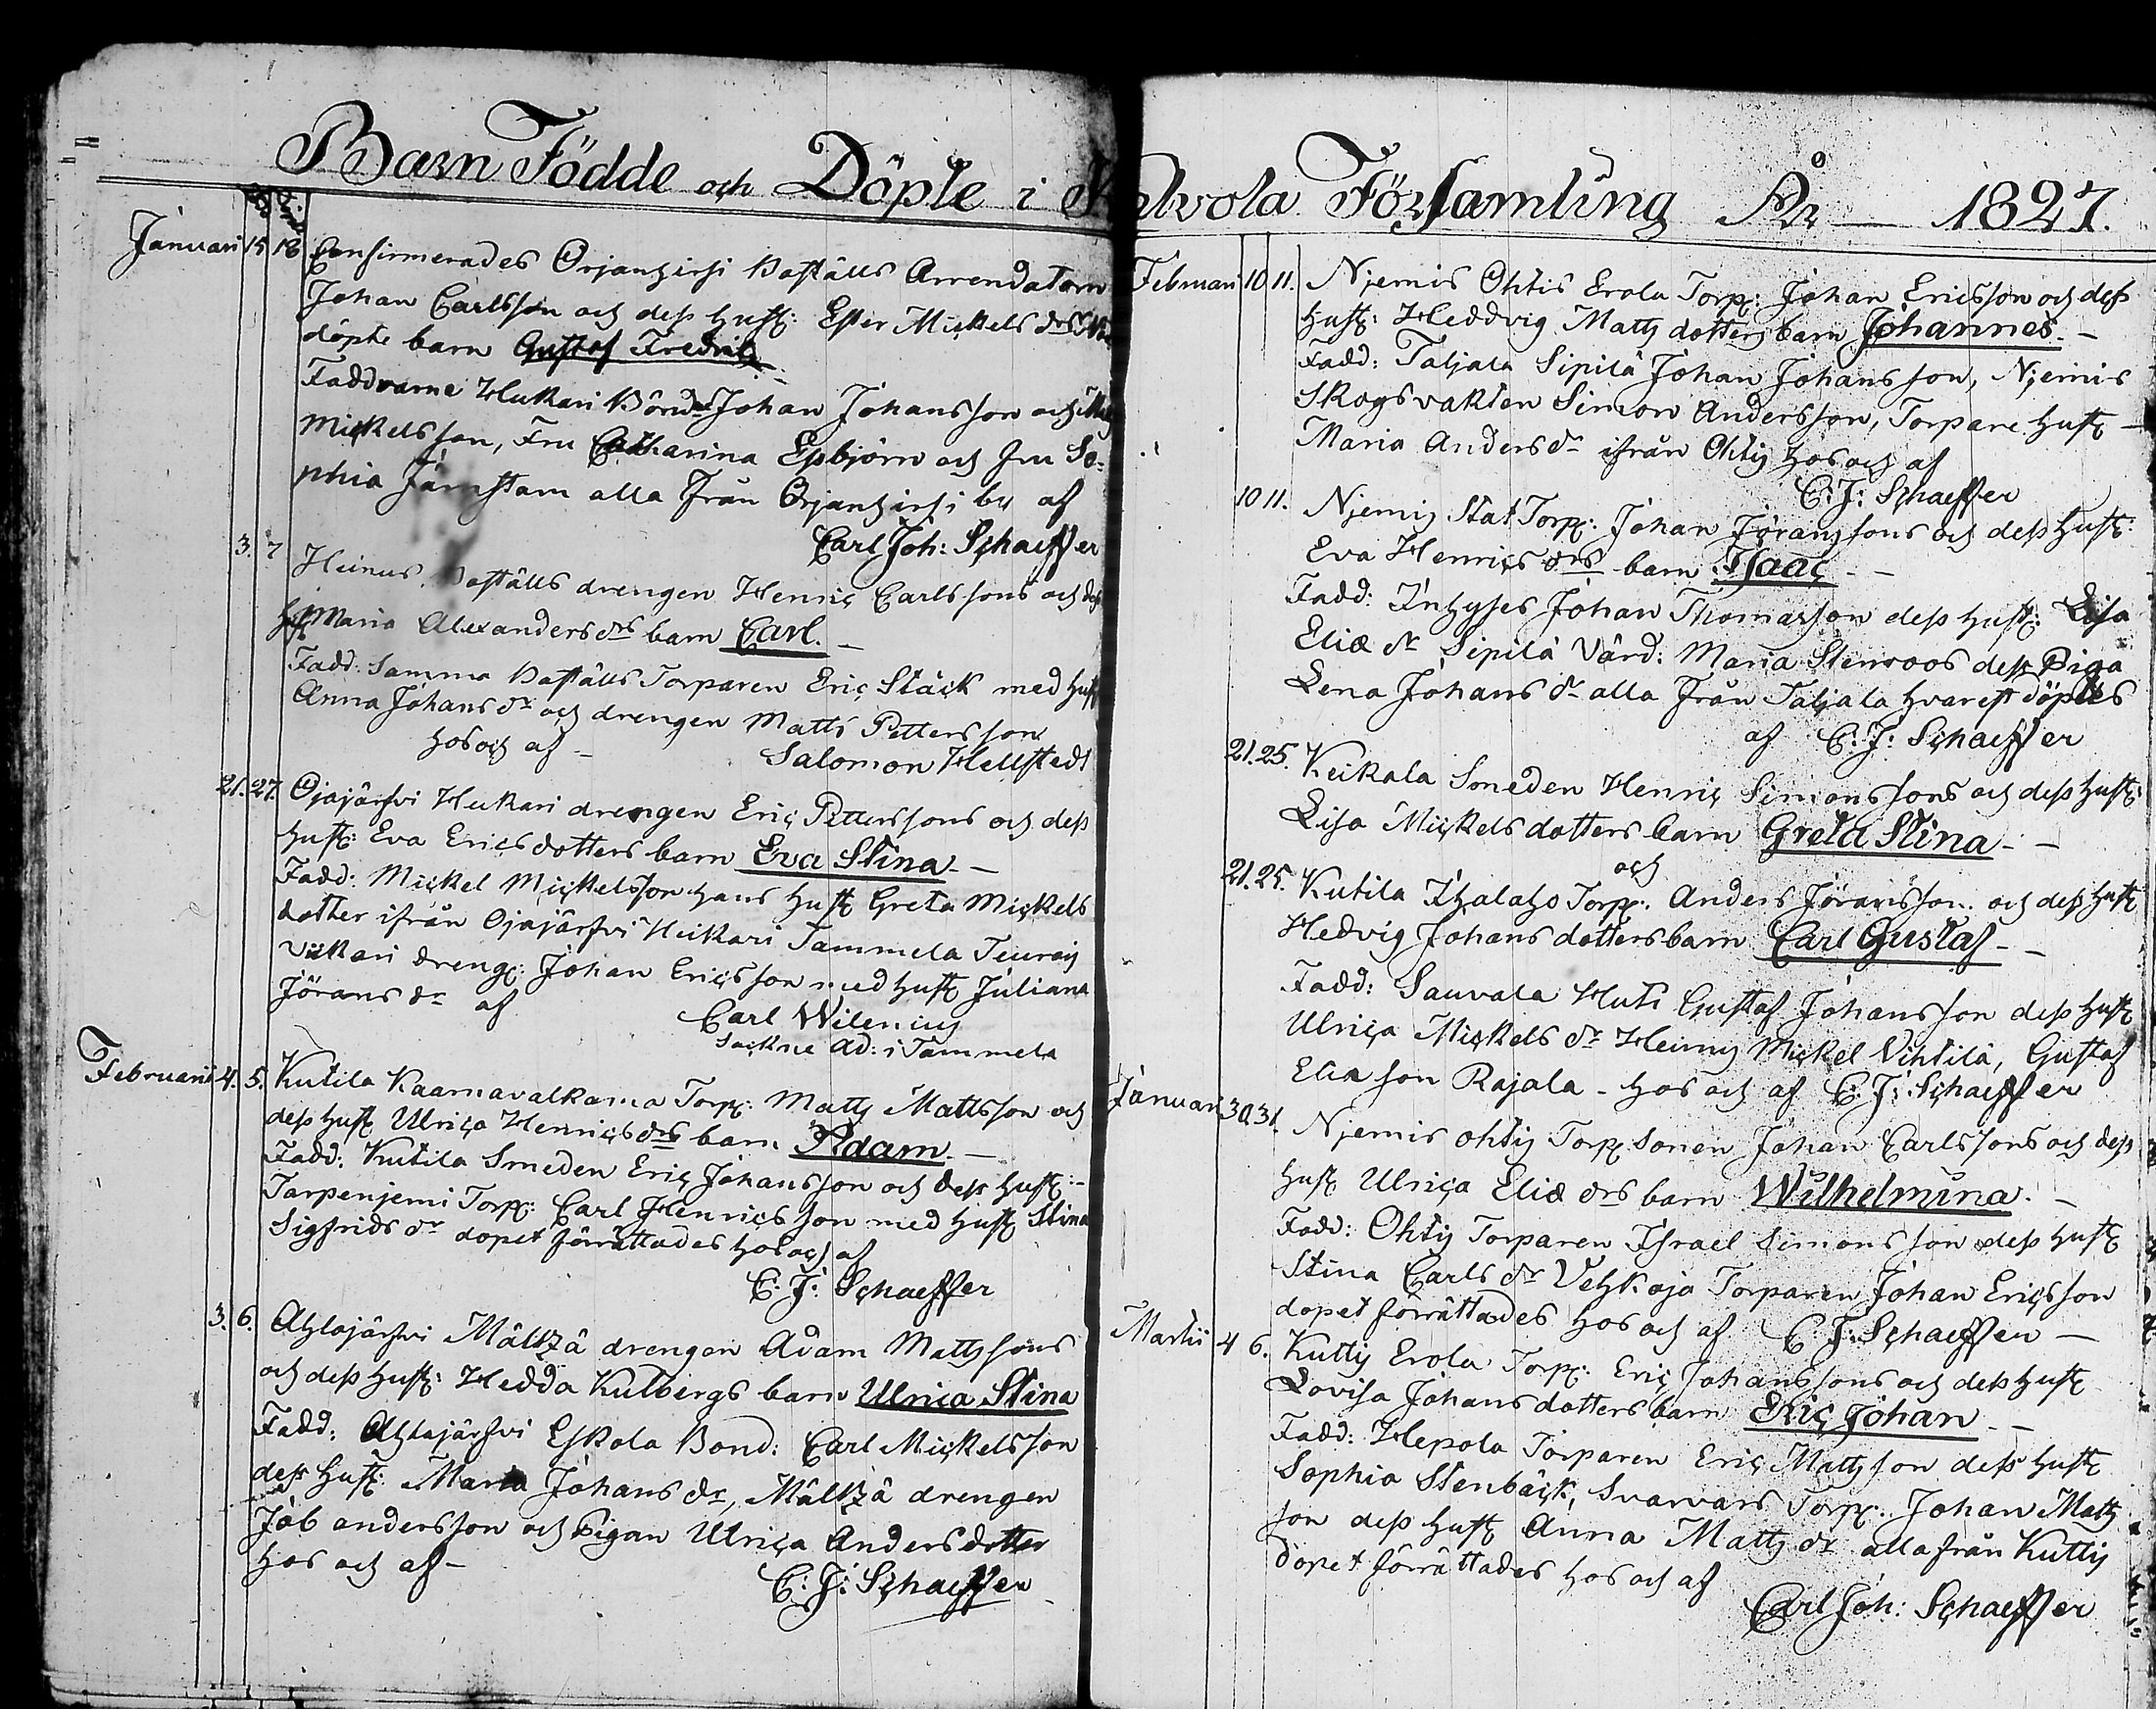 Barn Födde och Döpte i K
Januari 15 18 Confirmerades Orjanhirsi Boställs Arrendatorn
Johan Carlsson och dess Hust: Ester Mickels drs
döpte barn Gustaf Fredric
Faddrarne Heikari Bönd Johan Johansson och
Mickelsson, Fru Catharina Esbjörn och Fru So-
phia Järnstam alla från Orjanhirsi by af
Carl Joh: Schaeffer
3. 7 Heinus Boställs drengen Henric Carlssons och dess
Hust Maria Alexanders drs barn Carl. -
Fadd: Samma Boställs Torparen Eric Stäck med Hust
Anna Johans dr och drengen Matts Pettersson
hos och af - Salomon Hellstedt
21. 27. Ojajärfvi Heikari drengen Eric Petterssons och dess
Hust: Eva Ericsdotters barn Eva Stina. -
Fadd: Mickel Mickelsson hans Hust Greta Mickels
dotter ifrån Ojajärfvi Heikari Tammela Teurois
Vikari dreng: Johan Ericsson med Hust Juliana
Jörans dr af Carl Wilenius
Sockne Ad: i Tammela
Februarii 4. 5. Kutila Kaarnavalkama Torp: Matts Mattsson och
dess Hust Ulrica Henrics drs barn Adam. -
Fadd: Kutila Smeden Eric Johansson och dess Hust: -
Tarpenjemi Torp: Carl Henricsson med Hust Stina
Sigfrids dr dopet förrättades hos och af
C: J: Schaeffer
3. 6. Ahlajärfvi Mälkjä drengen Adam Mattssons
och dess Hust: Hedda Kulbergs barn Ulrica Stina
Fadd: Ahlajärfvi Eskola Bond: Carl Mickelsson
dess Hust: Maria Johans dr, Mälkjä drengen
Job andersson och Pigan Ulrica Andersdotter
hos och af - C: J: Schaeffer
alvola Församling År — 1827.
Februari 10 11. Njemis Ohtis Erola Torp: Johan Ericsson och dess
Hust: Heddvig Matts dotters barn Johannes. -
Fadd: Taljala Sipilä Johan Johansson, Njemis
Skogsvakten Simon Andersson, Torpare Hust -
Maria Anders dr ifrån Ohtis hos och af
C: J: Schaeffer
10 11. Njemis Stat Torp: Johan Göranssons och dess Hust:
Eva Henrics drs barn Isaac - -
Fadd: Inhyses Johan Thomasson dess Hust: Lisa
Eliæ dr Sipilä Värd: Maria Stenroos dess Piga
Lena Johans dr alla från Taljala hvarest döptes
af C: J: Schaeffer
21. 25. Keikala Smeden Henric Simonssons och dess Hust:
Lisa Mickelsdotters barn Greta Stina - -
och
21. 25. Kutila Ihalahs Torp: Anders Göransson och dess Hust
Hedvig Johansdotters barn Carl Gustaf - -
Fadd: Sauvala Huti Gustaf Johansson dess Hust
Ulrica Mickels dr Heinus Mickel Vihtilä, Gustaf
Eliæ son Rajala - hos och af C: J: Schaeffer
Januari 30 31. Njemis ohtis Torp sonen Johan Carlssons och dess
Hust Ulrica Eliæ drs barn Wilhelmina. -
Fadd: Ohtis Torparen Israel Simonsson dess Hust
Stina Carls dr Vehkoja Torparen Johan Ericsson
dopet förrättades hos och af C J: Schaeffer -
Martii 4 6. Kuttis Erola Torp: Eric Johanssons och dess Hust
Lovisa Johans dotters barn Eric Johan - -
Fadd: Hepola Torparen Eric Mattsson dess Hust
Sophia Stenbäck, Svarvars Torp: Johan Matts
son dess Hust Anna Matts dr alla från Kuttis
dopet förrättades hos och af
Carl Joh: Schaeffer